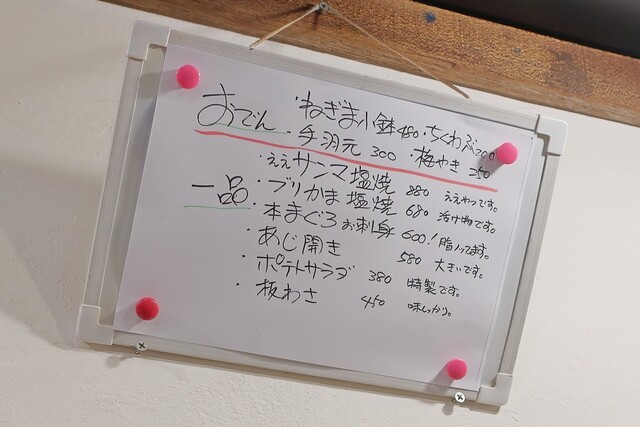 おでん ・ねぎま小鉢 480 ・ちくわぶ 200
・手羽元 300 ・梅やき 250
一品 ・ええサンマ塩焼 880 ええやつです。
・ブリかま塩焼 680 活け物です。
・本まぐろお刺身 600! 脂ノッてます。
・あじ開き 580 大きいです。
・ポテトサラダ 380 特製です。
・板わさ 450 味しっかり。